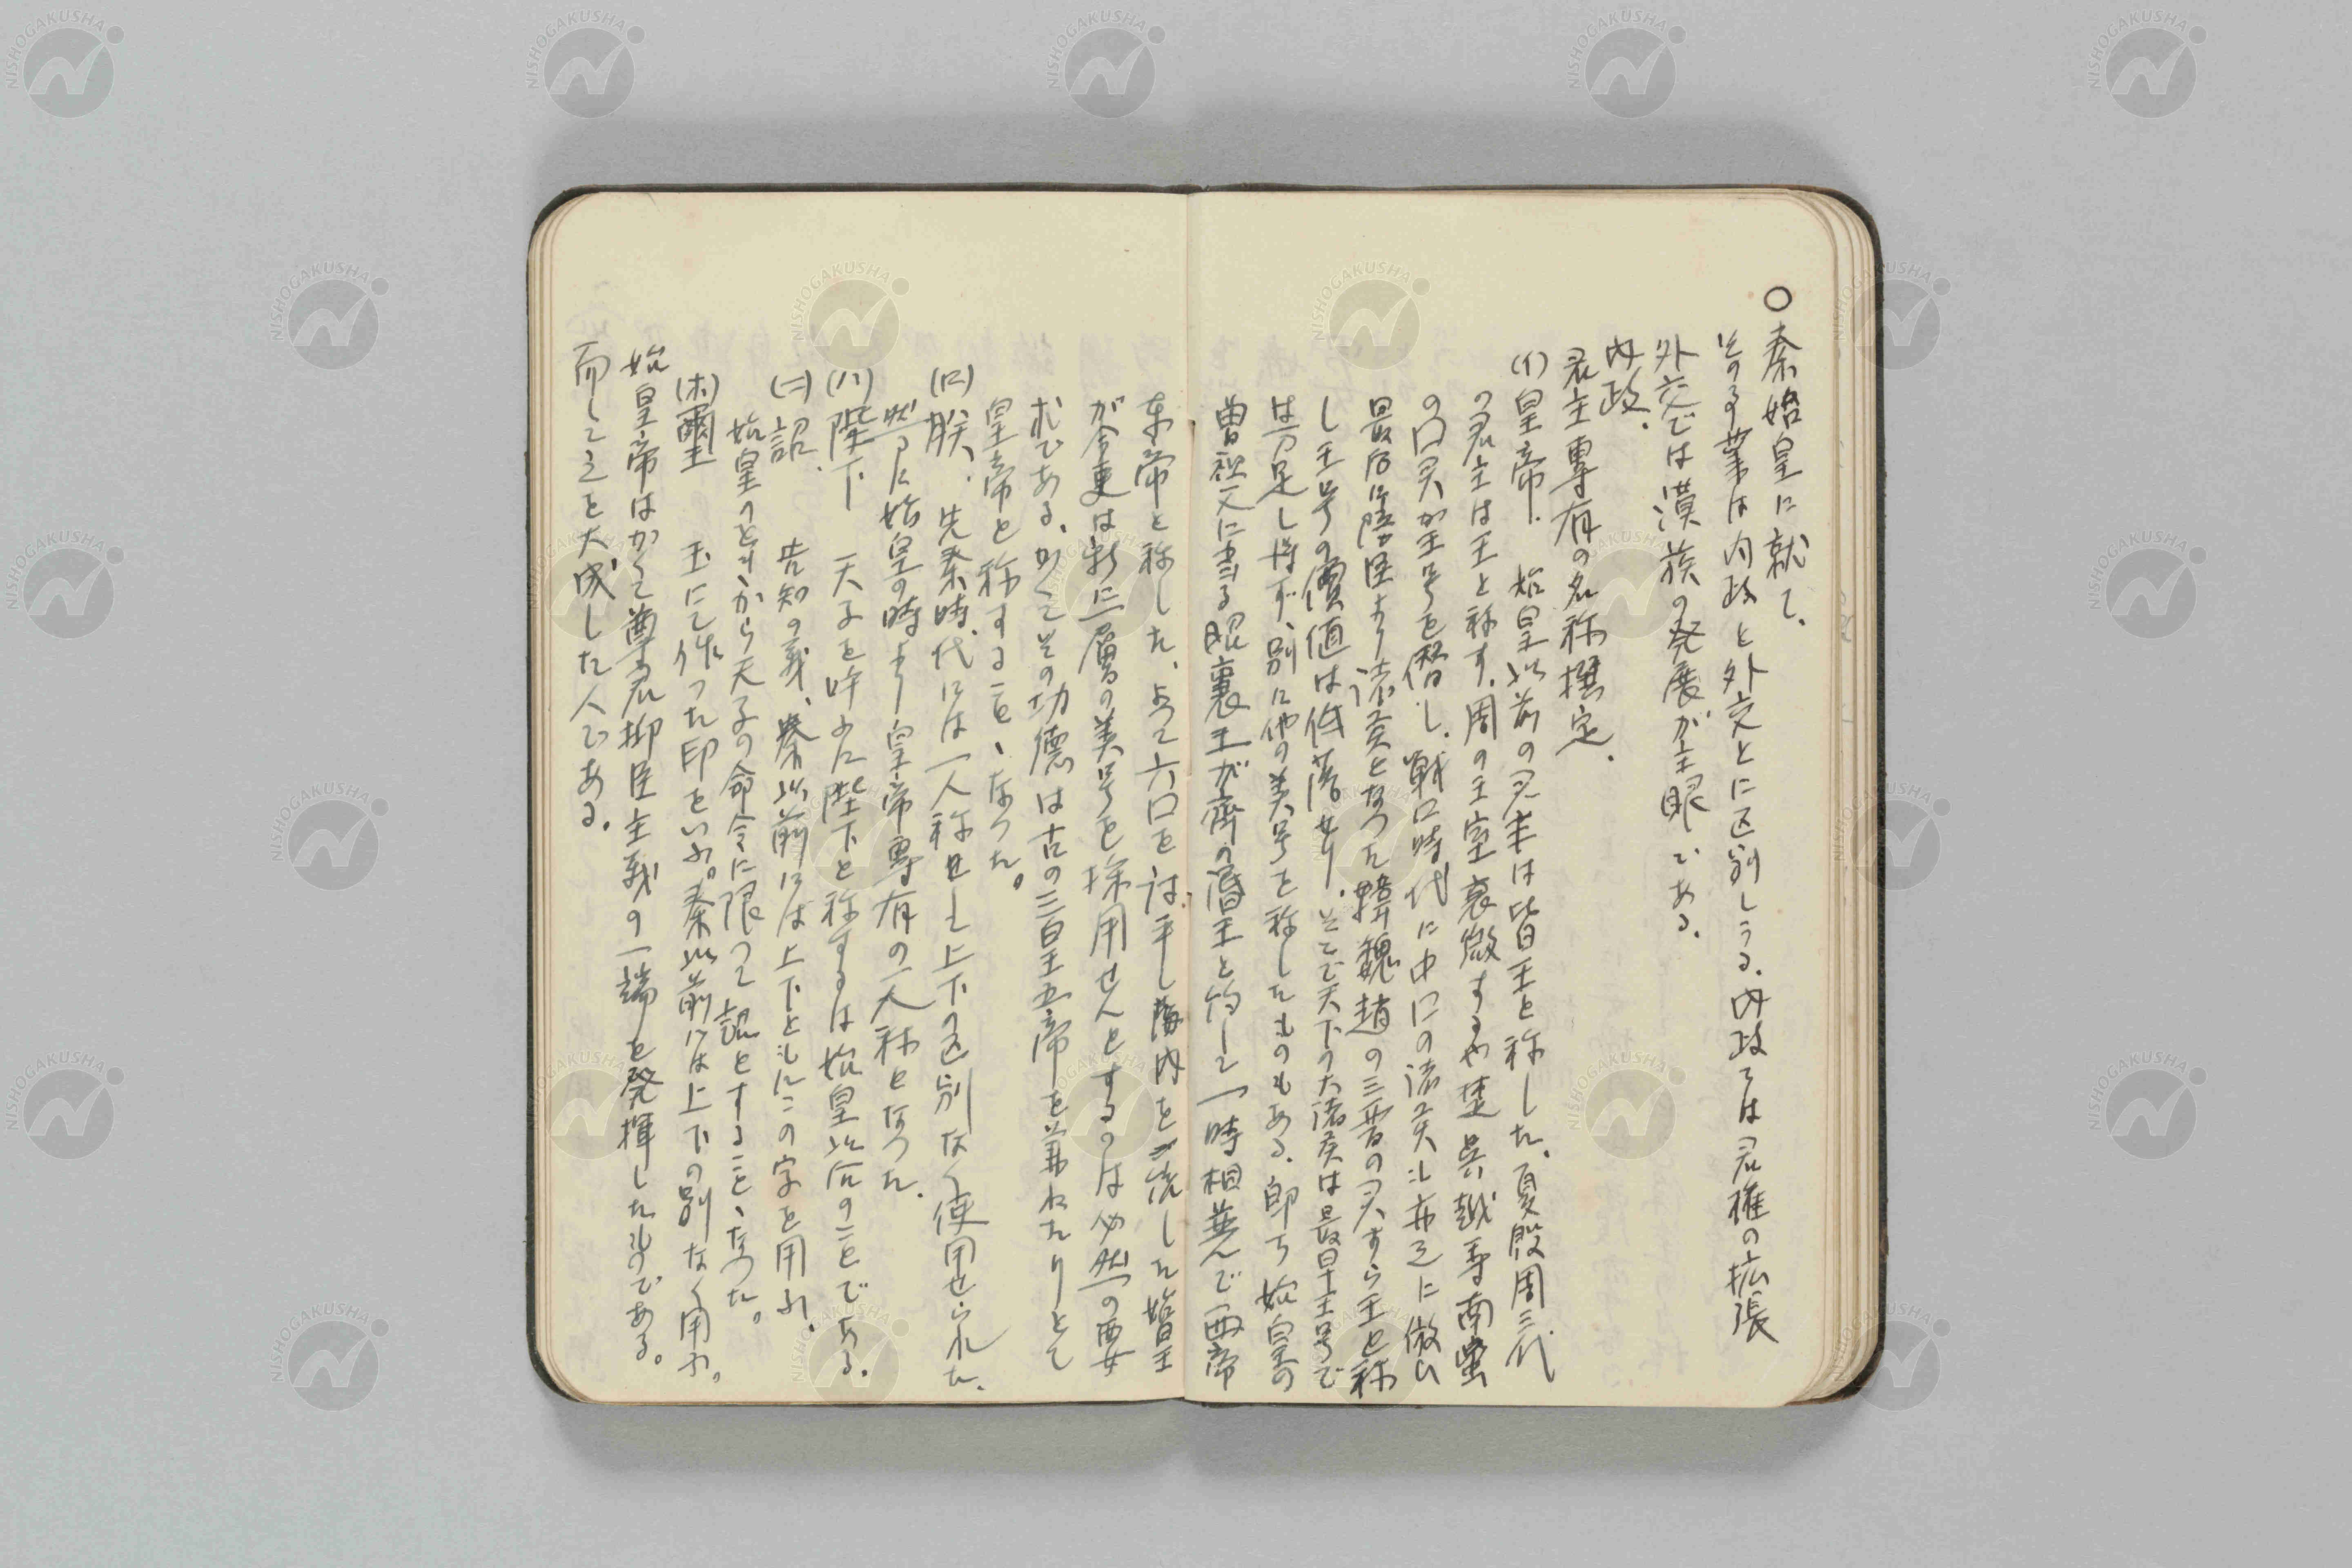 ○秦始皇に就て、
その事業は内政と外交とに区別しうる、内政では君権の拡張
外交では漢族の発展が主眼である.
内政.
君主専有の名称撰定.
(イ)皇帝. 始皇以前の君主は皆王と称した、夏殷周三代
の君主は王と称す、周の王室衰微するや楚呉越等南蛮
の口君が王号を僭し、戦口時代に中口の諸侯も亦之に倣ひ
最后に陪臣より諸侯となった韓魏趙の三晋の君すら王と称
し王号の價値は低落せり、そこで天下の大諸侯は最早王号で
は満足し得ず、別に他の美号を称したものもある、即ち始皇の
曽祖父に当る昭襄王が齊の湣王と約して一時相並んで西帝
東帝と称した、よって六口を討平し海内を統一した始皇
が今更は新に一層の美号を採用せんとするのは必然の要
求である、かくてその功徳は古の三皇五帝を兼ねたりとて
皇帝と称することゝなった。
(ロ)朕、先秦時代には一人称として上下の区別なく使用せられた、
然るに始皇の時より皇帝専有の一人称となった.
(ハ)陛下 天子を呼ぶに陛下と称するは始皇以后のことである.
(ニ)詔. 告知の義、秦以前には上下ともにこの字を用ふ.
始皇のときから天子の命令に限って詔とすることゝなった。
(ホ)璽 玉にて作った印をいふ。秦以前には上下の別なく用ふ。
始皇帝はかくて尊君抑臣主義の一端を発揮したものである。
而して之を大成した人である.